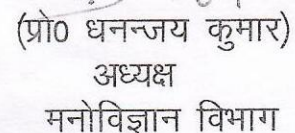 (प्रो0 धनन्जय कुमार)
अध्यक्ष
मनोविज्ञान विभाग